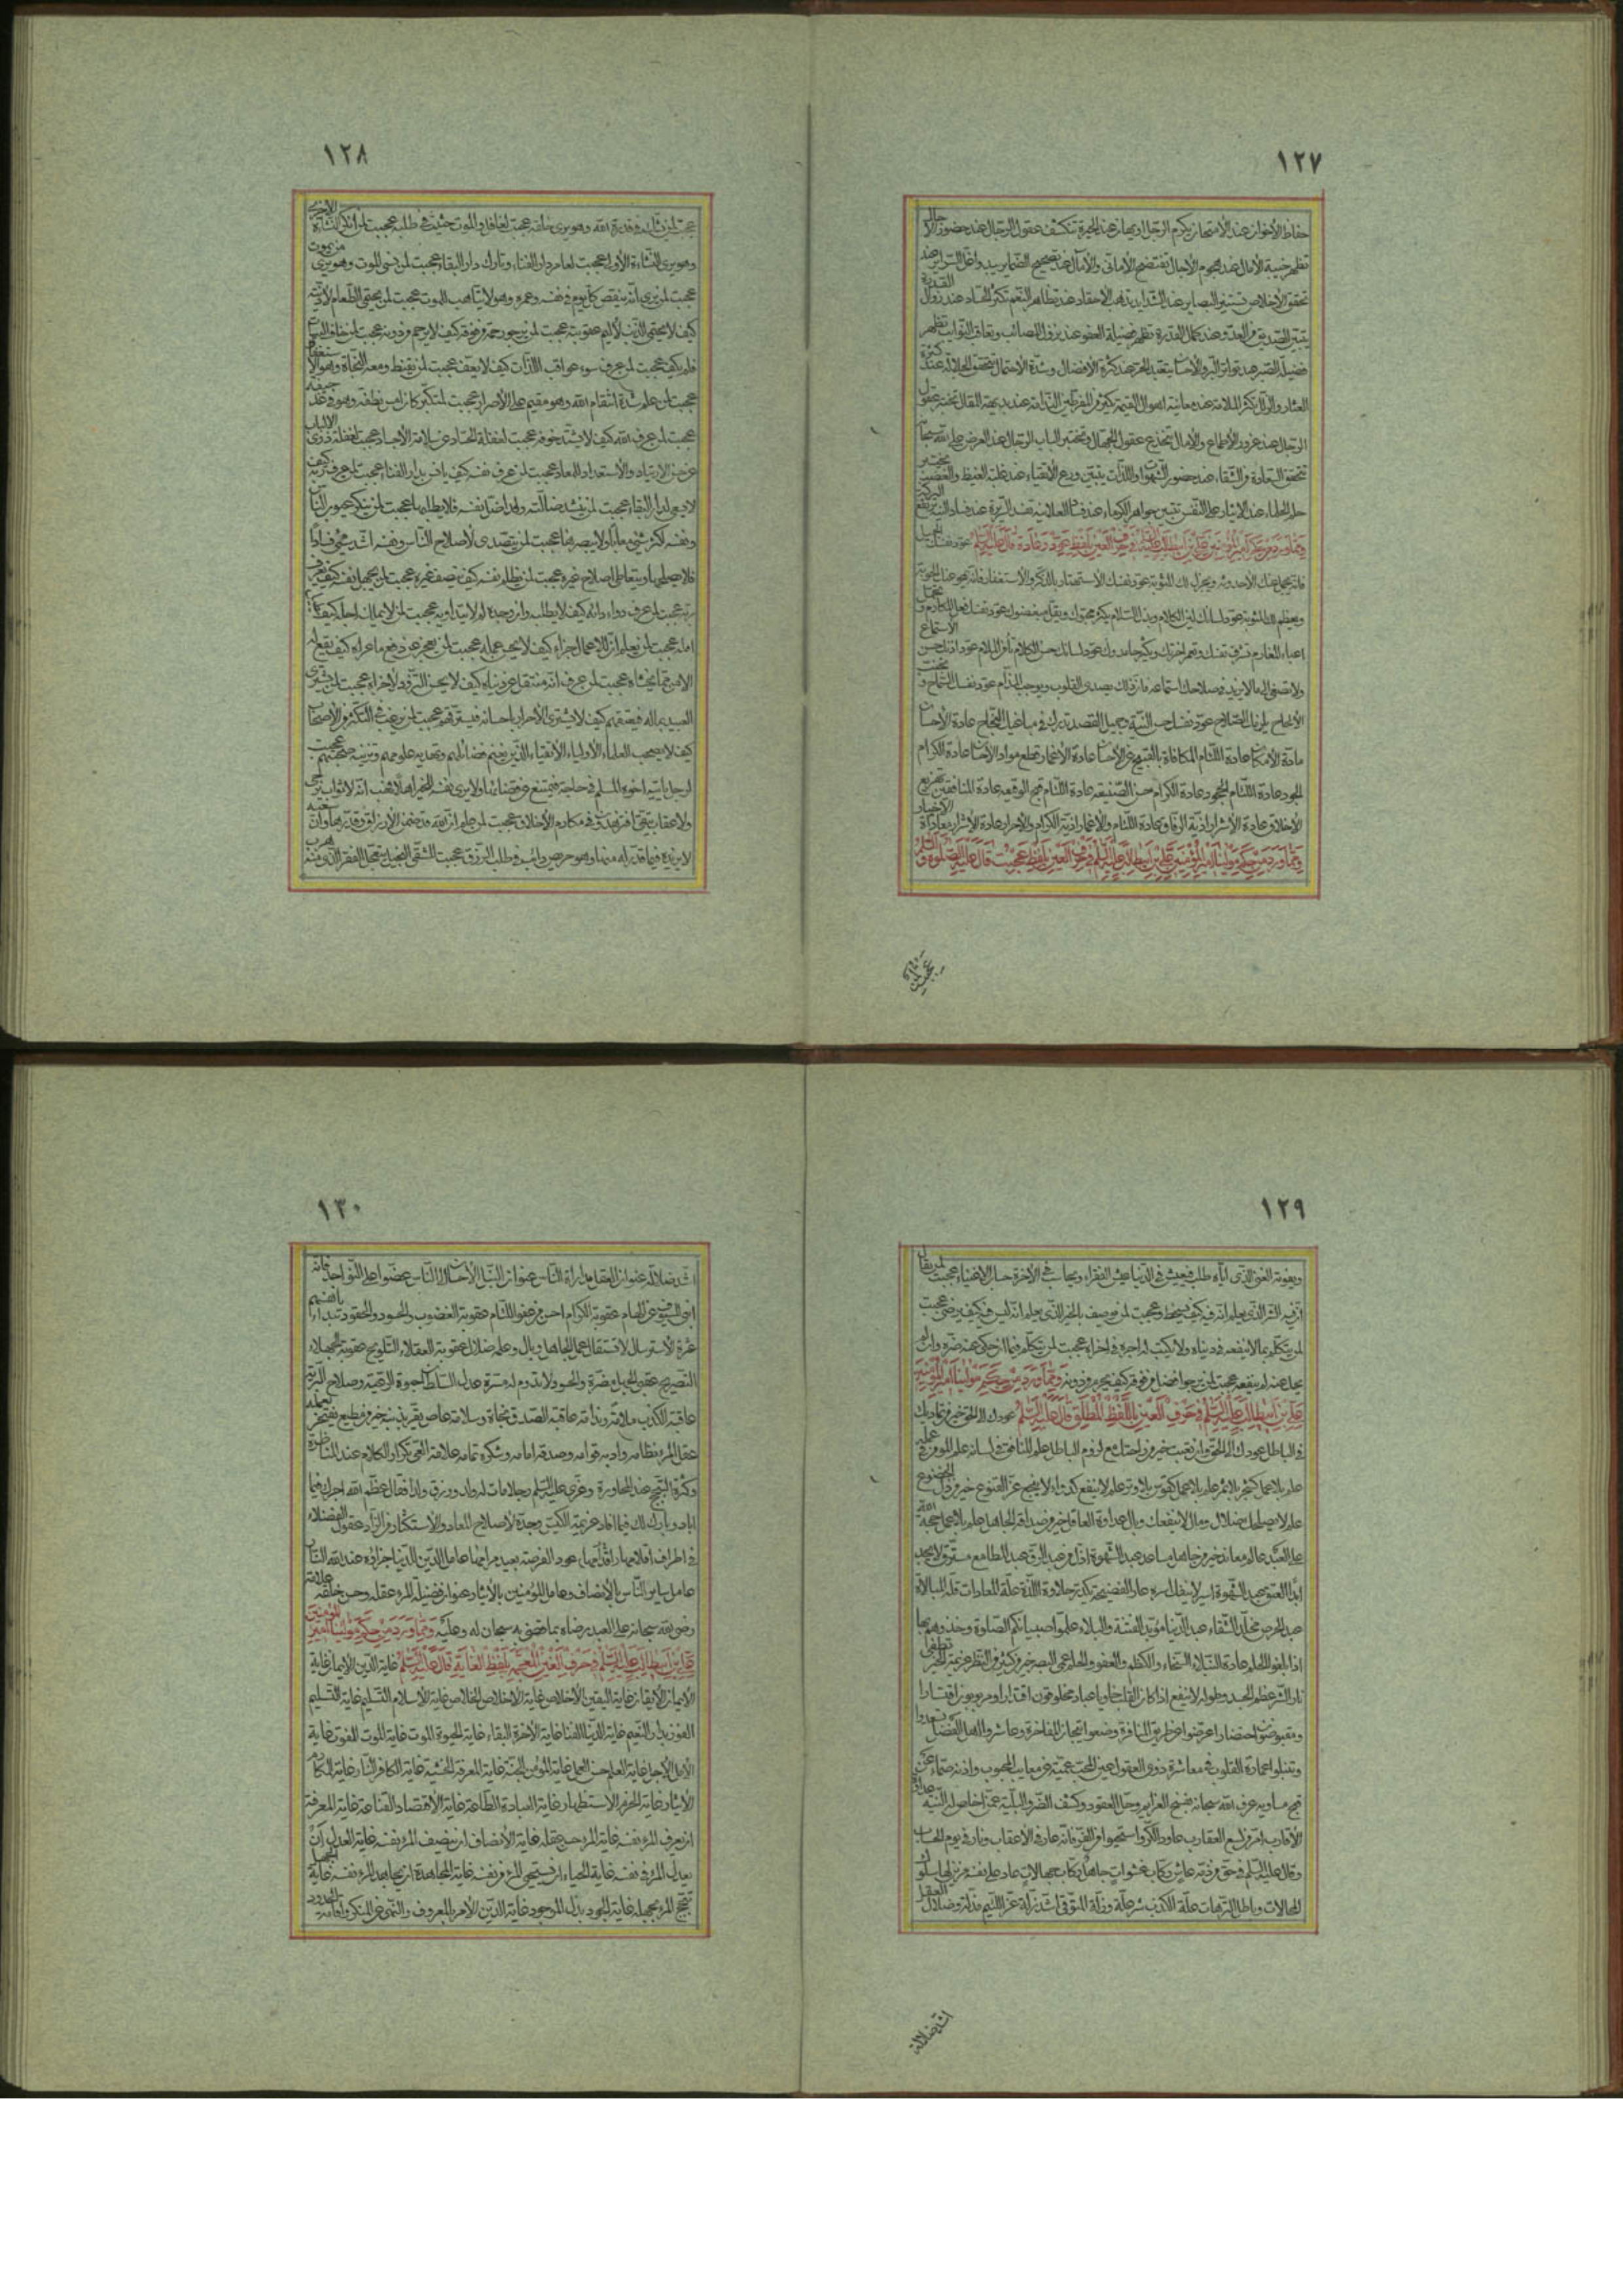 ١٢٧
حفاظ الأخوان عند الأمتحان يكرم الرجل او يهان عند الحيرة تنكشف عقول الرجال عند حضور الآجال
تظهر خيبة الآمال عند هجوم الآجال تفتضح الأماني والآمال عند تصحيح الضماير يبدو اغل السرائر عند
تحقق الأخلاص تستنير البصاير عند الشدايد تذهب الأحقاد عند تظاهر النعم تكثر الحساد عند زوال القدرة
يتبين الصديق من العدو عند كمال القدرة تظهر فضيلة العفو عند نزول المصائب وتعاقب النوائب تظهر
فضيلة الصبر عند تواتر البر والأحسان يتعبد الحر عند كثرة الأفضال وشدة الأحتمال تتحقق الجلالة عند كثرة
العثار والزلل تكثر الملامة عند معاينة اهوال القيمة تكثر من المفرطين الندامة عند بديهة المقال تختبر عقول
الرجال عند غرور الأطماع والآمال تنخدع عقول الجهال وتختبر الباب الرجال عند العرض على الله سبحانه
تتحقق السعادة من الشقاء عند حضور الشهوات واللذات يتبين ورع الأتقياء عند غلبة الغيظ والغضب يختبر
حلم الحلماء عند الايثار على النفس تتبين جواهر الكرماء عند فساد العلانية تفسد السريرة عند فساد النية ترتفع البركة
ومما ورد من حكم امير المؤمنين علي بن ابيطالب عليه السلام في حرف العين بلفظ عود وعادة قال عليه السلام عود نفسك الجميل
فانه يجمل عنك الأحدوثة ويجزل لك المثوبة عود نفسك الأستهتار بالذكر والأستغفار فانه يمحو عنك الحوبة
ويعظم لك المثوبة عود لسانك لين الكلام وبذل السلام يكثر محبوك ويقل مبغضوك عود نفسك فعل المكارم وتحمل
اعباء المغارم تشرف نفسك وتعمر اخرتك ويكثر حامدوك عود لسانك حسن الكلام تأمن الملام عود اذنك حسن الأستماع
ولا تصغ الى ما لا يزيد في صلاحك استماعه فان ذلك يصدي القلوب ويوجب المذام عود نفسك السماح وتجنب
الألحاح يلزمك الصلاح عود نفسك حسن النية وجميل القصد تدرك في مباغيك النجاح عادة الأحسان
مادة الأمكان عادة اللئام المكافاة بالقبيح عن الأحسان عادة الأغمار قطع مواد الأحسان عادة الكرام
الجود عادة اللئام الجحود عادة الكرام حسن الصنيعة عادة اللئام قبح الوقيعة عادة المنافقين تهزيع
الأخلاق عادة الأشرار اذية الرفاق عادة اللئام والأغمار اذية الكرام والأحرار عادة الأشرار معاداة الأخيار
ومما ورد من حكم مولينا امير المؤمنين علي بن ابيطالب عليه السلام في حرف العين بلفظ عجبت قال عليه الصلوة والسلام
عجبت لمن شك
١٢٨
عجبت لمن شك في قدرة الله وهو يرى خلقه عجبت لغافل والموت حثيث في طلبه عجبت لمن انكر النشأة الأخرى
وهو يرى النشاءة الأولى عجبت لعامر دار الفناء وتارك دار البقاء عجبت لمن نسي الموت وهو يرى من يموت
عجبت لمن يرى انه ينقص كل يوم في نفسه وعمره وهو لا يتأهب للموت عجبت لمن يحتمي الطعام لأذيته
كيف لا يحتمي الذنب لأليم عقوبته عجبت لمن يرجو رحمة من فوقه كيف لا يرحم من دونه عجبت لمن خاف البيات
فلم يكف عجبت لمن عرف سوء عواقب اللذات كيف لا يعف عجبت لمن يقنط ومعه النجاة وهو الأستغفار
عجبت لمن علم شدة انتقام الله وهو مقيم على الأصرار عجبت لمتكبر كان امس نطفة وهو في غد جيفة
عجبت لمن عرف الله كيف لا يشتد خوفه عجبت لغفلة الحساد عن سلامة الأجساد عجبت لغفلة ذوي الألباب
عن حسن الارتياد والأستعداد للمعاد عجبت لمن عرف نفسه كيف يانس بدار الفناء عجبت لمن عرف ربه كيف
لا يسعى لدار البقاء عجبت لمن ينشد ضالته وقد اضل نفسه فلا يطلبها عجبت لمن ينكر عيوب الناس
ونفسه اكثر شيء معابا ولا يبصرها عجبت لمن يتصدى لأصلاح الناس ونفسه اشد شيء فسادا
فلا يصلحها ويتعاطى اصلاح غيره عجبت لمن يظلم نفسه كيف ينصف غيره عجبت لمن يجهل نفسه كيف يعرف
ربه عجبت لمن عرف دواء دائه كيف لا يطلبه وان وجده لم لا يتداوى به عجبت لمن لا يملك اجله كيف يطيل
امله عجبت لمن يعلم ان للاعمال جزاء كيف لا يحسن عمله عجبت لمن يعجز عن دفع ما عراه كيف يقع له
الامن مما يخشاه عجبت لمن عرف انه منتقل عن دنياه كيف لا يحسن التزود لأخراه عجبت لمن يشتري
العبيد بماله فيعتقهم كيف لا يشتري الأحرار باحسانه فيسترقهم عجبت لمن يرغب في التكثر من الأصحاب
كيف لا يصحب العلماء الأولياء الأتقياء الذين يغنم فضائلهم وتهديه علومهم وتزينه صحبتهم عجبت
لرجل يأتيه اخوه المسلم في حاجة فيمتنع عن قضائها ولا يرى نفسه للخير اهلا فهب انه لا ثواب يرجى
ولا عقاب يتقى افتزهدون في مكارم الأخلاق عجبت لمن علم ان الله قد ضمن الأرزاق وقدرها وان سعيه
لا يزيده فيما قدر له منها وهو حريص دائب في طلب الرزق عجبت للشقي البخيل يتعجل الفقر الذي منه هرب
١٢٩
ويفوته الغنى الذي اياه طلب فيعيش في الدنيا عيش الفقراء ويحاسب في الآخرة حساب الاغنياء عجبت لمن يقال
ان فيه الشر الذي يعلم انه فيه كيف يسخط وعجبت لمن يوصف بالخير الذي يعلم انه ليس فيه كيف يرضى عجبت
لمن يتكلم بما لا ينفعه في دنياه ولا يكتب له اجره في اخراه عجبت لمن يتكلم فيما ان حكي عنه ضره وان لم
يحك عنه لم ينفعه عجبت لمن يرجو فضل من فوقه كيف يحرم من دونه ومما ورد من حكم مولينا امير المؤمنين
علي بن ابيطالب عليه السلام في حرف العين باللفظ المطلق قال عليه السلام عودك الى الحق خير من تماديك
في الباطل عودك الى الحق وان تعبت خير من راحتك مع لزوم الباطل علم المنافق في لسانه علم المومن في عمله
علم بلا عمل كشجر بلا ثمر علم بلا عمل كقوس بلا وتر علم لا ينفع كدواء لا ينجع عز القنوع خير من ذل الخضوع
علم لا يصلحك ضلال ومال لا ينفعك وبال عداوة العاقل خير من صداقة الجاهل علم بلا عمل حجة الله
على العبد عالم معاند خير من جاهل مساعد عبد الشهوة اذل من عبد الرق عبد المطامع مسترق لا يجد
ابدا العتق عبد الشهوة اسير لا ينفك اسره عار الفضيحة يكدر حلاوة اللذة علة المعادات قلة المبالاة
عبد الحرص مخلد الشقاء عبد الدنيا مؤبد الفتنة والبلاء علموا صبيانكم الصلوة وخذوهم بها
اذا بلغوا الحلم عادة النبلاء السخاء والكظم والعفو والحلم عمى البصر خير من كثير من النظر عزيمة الخير تطفئ
نار الشر عظم الجسد وطوله لا ينفع اذا كان القلب خاويا عباد مخلوقون اقتدارا ومربوبون اقتسارا
ومقبوضون احتضارا عرضوا عن طريق المنافرة وضعوا تيجان المفاخرة وعاشروا اهل الفضل تسعدوا
وتنبلوا عمارة القلوب في معاشرة ذوي العقول عين المحب عمية عن معايب المحبوب واذنه صماء عن
قبح مساويه عرف الله سبحانه بفسخ العزايم وحل العقود وكشف الضر والبلية عمن اخلص له النية عداوة
الأقارب امر من لسع العقارب عاودوا الكر واستحيوا من الفر فانه عار في الأعقاب ونار في يوم الحساب
وقال عليه السلام في حق من ذمه عاش ركاب عشوات جاهل ركاب جهالات عاد على نفسه مزين لها سلوك
المحالات وباطل الترهات علة الكذب شر علة وزلة المتوقي اشد زلة عز اللئيم مذلة وضلال العقل
اشد ضلالة
١٣٠
اشد ضلالة عنوان العقل مداراة الناس عنوان النبل الأحسان الى الناس عضوا على النواجذ فانه
انبى للسيوف عن الهام عقوبة الكرام احسن من عفو اللئام عقوبة الغضوب والحسود والحقود تبدأ بانفسهم
عثرة الأسترسال لا تستقال عمل الجاهل وبال وعلمه ضلال عقوبة العقلاء التلويح عقوبة الجهلاء
التصريح عقبى الجهل مضرة والحسود لا تدوم له مسرة عدل السلطان حيوة الرعية وصلاح البرية
عاقبة الكذب ملامة وندامة عاقبة الصدق نجاة وسلامة عاص يقر بذنبه خير من مطيع يفتخر بعمله
عقل المرء نظامه وادبه قوامه وصدقه امامه وشكره تمامه علامة العي تكرار الكلام عند المناظرة
وكثرة التبجح عند المحاورة وعزى عليه السلام رجلا مات له ولد ورزق ولدا فقال عظم الله اجرك فيما
اباد وبارك لك فيما افاد عزيمة الكيس وجده لأصلاح المعاد والأستكثار من الزاد عقول الفضلاء
في اطراف اقلامها عود الفرصة بعيد مرامها عامل الدين للدنيا جزاؤه عند الله النار
عامل ساير الناس بالأنصاف وعامل المؤمنين بالأيثار عنوان فضيلة المرء عقله وحسن خلقه علامة
رضى الله سبحانه على العبد رضاه بما قضى به سبحانه له وعليه ومما ورد من حكم مولينا امير المؤمنين
علي بن ابيطالب عليه السلام في حرف الغين المعجمة بلفظ الغاية قال عليه السلام غاية الدين الايمان غاية
الأيمان الأيقان غاية اليقين الأخلاص غاية الاخلاص الخلاص غاية الأسلام التسليم غاية التسليم
الفوز بدار النعيم غاية الدنيا الفناء غاية الآخرة البقاء غاية الحيوة الموت غاية الموت الفوت غاية
الأمل الأجل غاية العلم حسن العمل غاية المؤمن الجنة غاية المعرفة الخشية غاية الكافر النار غاية المكارم
الأيثار غاية الحزم الاستظهار غاية العبادة الطاعة غاية الأقتصاد القناعة غاية المعرفة
ان يعرف المرء نفسه غاية المرء حسن عقله غاية الأنصاف ان ينصف المرء نفسه غاية العدل ان
يعدل المرء في نفسه غاية الحياء ان يستحيي المرء من نفسه غاية المجاهدة ان يجاهد المرء نفسه غاية الجهل
تبجح المرء بجهله غاية الجود بذل الموجود غاية الدين الأمر بالمعروف والنهي عن المنكر واقامة الحدود